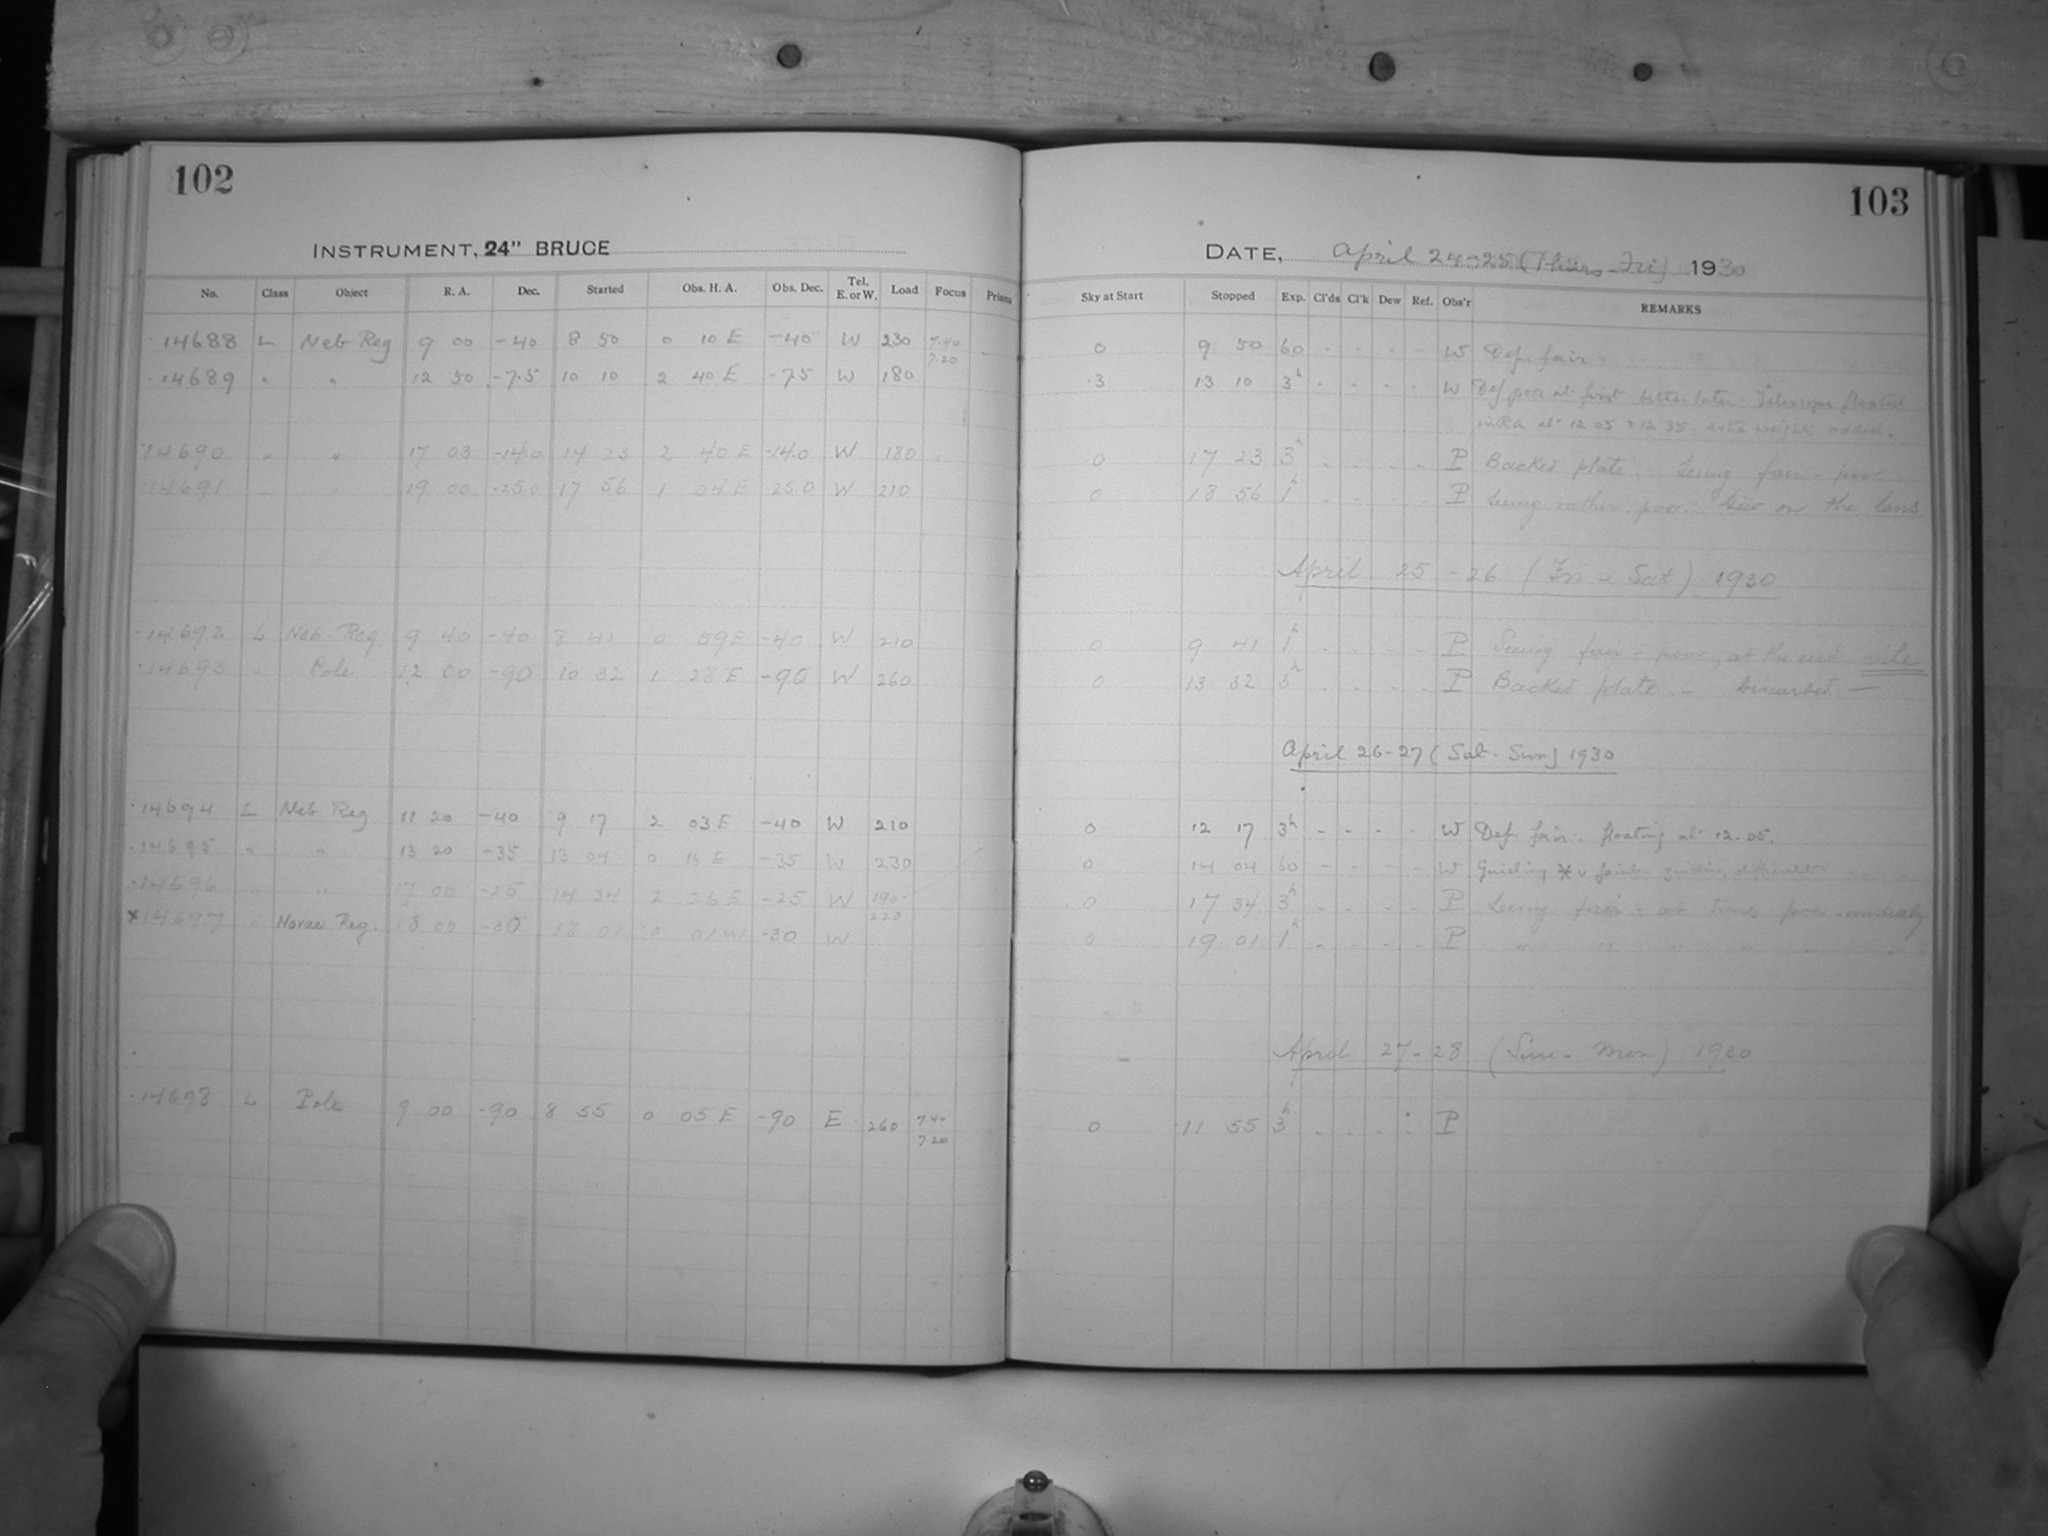 102
INSTRUMENT, 24" BRUCE
No. Class Object R. A. Dec. Started Obs. H. A. Obs. Dec. Tel. E. or W. Load Focus Prism
14688 L Neb Reg 9 00 -40 8 50 0 10 E -40 W 230 7.40 7.20 -
14689 " " 12 50 -7.5 10 10 2 40 E -7.5 W 180
14690 " " 17 03 -14.0 14 23 2 40 E -14.0 W 180
14691 " " 19 00 -25.0 17 56 1 04 E -25.0 W 210
14692 L Neb. Reg. 9 40 -40 8 41 0 59 E -40 W 210
14693 " Pole 12 00 -90 10 32 1 28 E -90 W 260
14694 L Neb Reg 11 20 -40 9 17 2 03 E -40 W 210
14695 " " 13 20 -35 13 04 0 16 E -35 W 230
14696 " " 17 00 -25 14 34 2 26 E -25 W 190-220
*14697 " Novae Reg. 18 00 -30 18 01 0 01 W -30 W
14698 L Pole 9 00 -90 8 55 0 05 E -90 E 260 7.40 7.20
103
DATE, April 24-25 (Thurs-Fri) 1930
Sky at Start Stopped Exp. Cl'ds Cl'k Dew Ref. Obs'r REMARKS
0 9 50 60 - - - - W Def. fair.
.3 13 10 3h - - - - W Def poor at first better later. Telescope floated
in RA at 12 05 & 12 35 extra weights added.
0 17 23 3h - - - - P Backed plate. Seeing fair - poor
0 18 56 1h - - - - P Seeing rather poor. Dew on the lens
April 25-26 (Fri - Sat) 1930
0 9 41 1h - - - - P Seeing fair - poor, at the end vile
0 13 32 3h - - - - P Backed plate. - Discarded. -
April 26-27 (Sat - Sun) 1930
0 12 17 3h - - - - W Def. fair. floating at 12.05.
0 14 04 60 - - - - W Guiding * v faint guiding difficult
0 17 34 3h - - - - P Seeing fair - at times poor - unsteady
0 19 01 1h - - - - P " " " " " "
April 27-28 (Sun - Mon) 1930
0 11 55 3h - - - - P